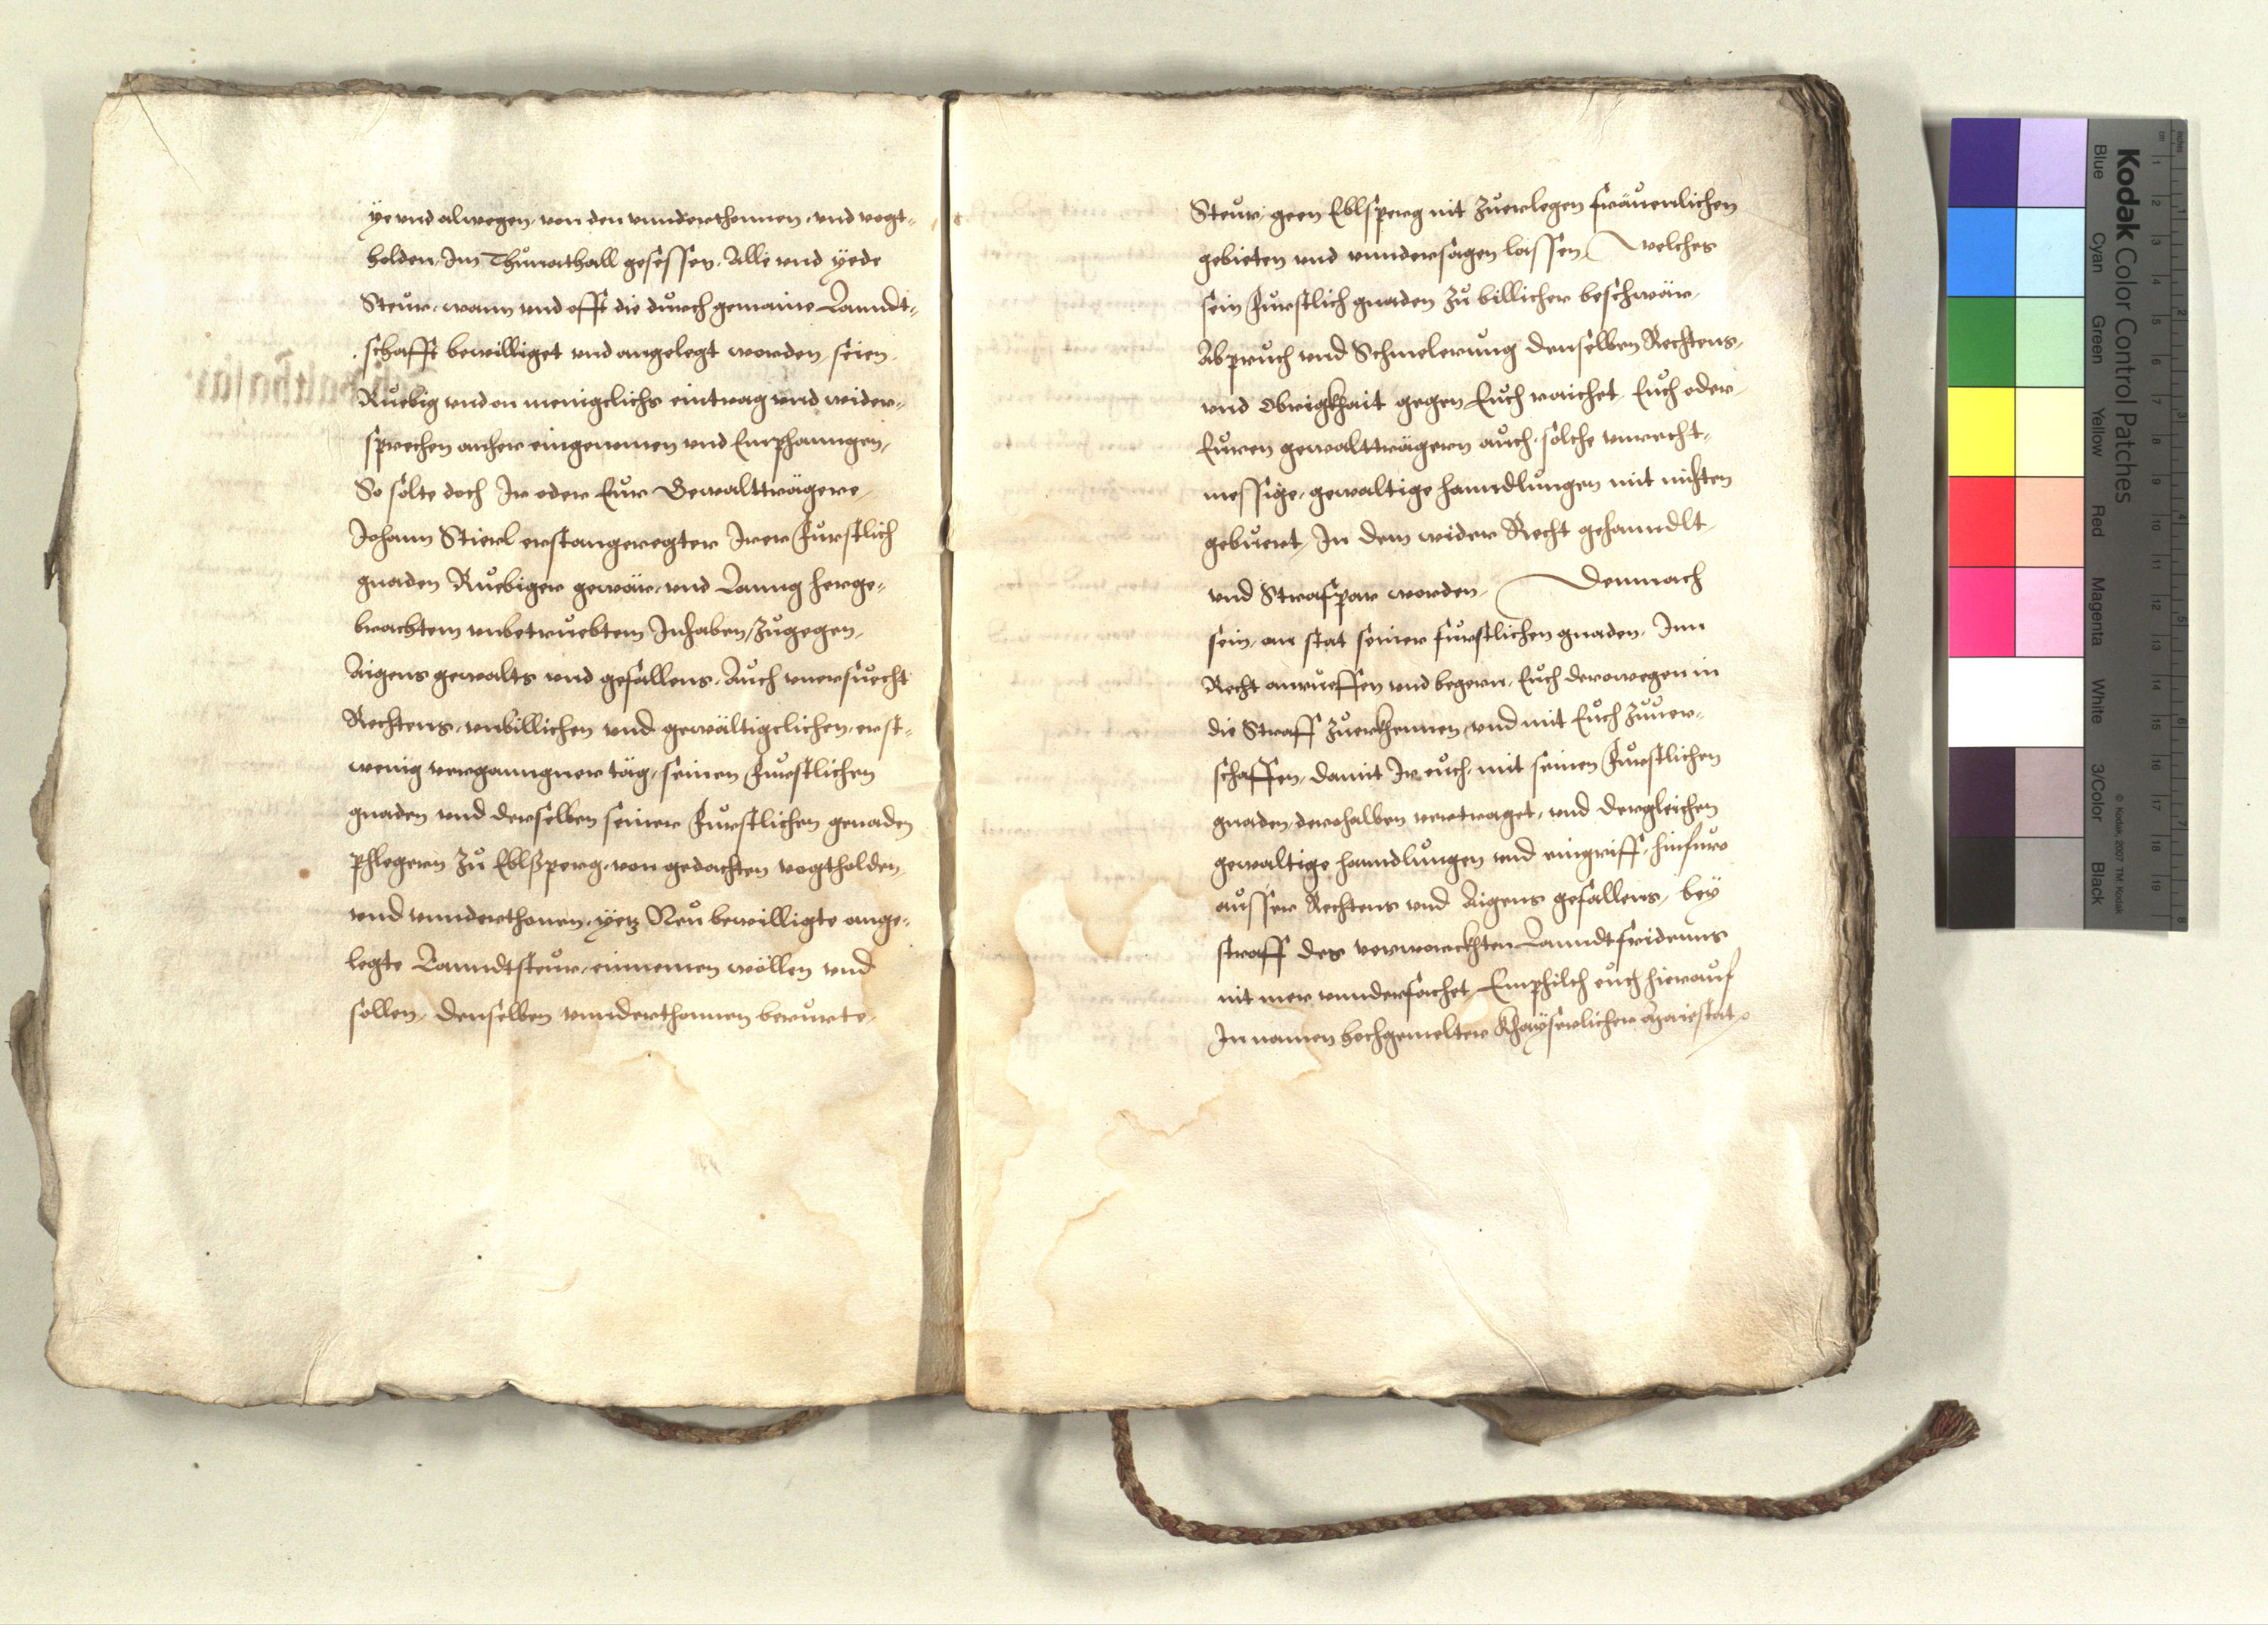 ye vnd alwegen, von den vnnderthonnen, vnd vogt-
holden, Im Thurnthall gesessen, Alle vnd yede
Steur, wann vnd offt die durch gemaine Lanndt-
schafft bewilliget vnd angelegt worden, seien,
Ruebig vnd on menigclichs eintrag vnd wider-
sprechen anher eingenomen vnd Emphanngen,
So solte doch Ir oder Eur Gewaltträgere,
Johann Stierl erstangeregter Irer Fürstlich
gnaden Ruebiger gewär, vnd Lanng herge-
brachtem vnbetruebtem Inhaben, zugegen,
Aigens gewalts vnd gefallens, Auch vnersuecht
Rechtens, vnbillichen vnd gewältigclichen, erst-
wenig verganngner täg, seinen Fürstlichen
gnaden vnd derselben seiner Fürstlichen genaden
phlegern zu Eblsperg, von gedachten vogtholden,
vnd vnnderthonen, yetz Neu bewilligte ange-
legte Lanndtsteur, einnemen wöllen vnd
sollen, denselben vnnderthonnen berurte,
Steur, geen Eblsperg nit zuerlegen fräuenlichen
gebieten vnd vnndersagen lassen, Welches
sein Fürstlich gnaden zu billicher beschwär,
Abpruch vnd Schmelerung denselben Rechtens,
vnd Obrigkhait gegen Euch raichet, Euch oder
Euren gewaltträgern auch, solche vnrecht-
messige, gewaltige hanndlungen mit nichten
gebuert, In dem wider Recht gehanndlt
vnd Strafpar worden, Demnach
sein, an stat seiner furstlichen gnaden, Inn
Recht anrueffen vnd begern, Euch derowegen in
die Straff zuerkhennen, vnd mit Euch zuuer-
schaffen, damit Ir euch, mit seinen Fürstlichen
gnaden, derohalben vertraget, vnd dergleichen
gewaltige hanndlungen vnd eingriff, hinfuro
ausser Rechtens vnd Aigens gefallens, bey
straff des verworckhten Lanndtfridenns
nit mer vnnderfachet, Emphilch euch hierauf
In namen hochgemelter Khayserlicher Maiestat
Kodak Color Control Patches
© Kodak, 2007 TM: Kodak
Blue Cyan Green Yellow Red Magenta White 3/Color Black